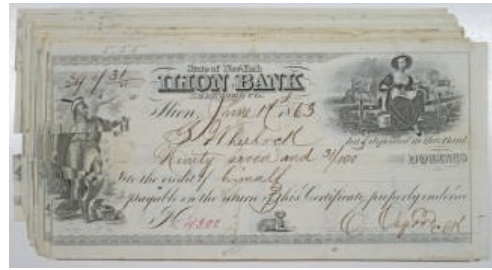 555
State of New York
ILION BANK
HERKIMER CO.
Ilion, June 19 1863
has deposited in this Bank
Ninety seven and 31/100 DOLLARS
to the credit of himself
payable on the return of this Certificate properly endorsed
No 4300